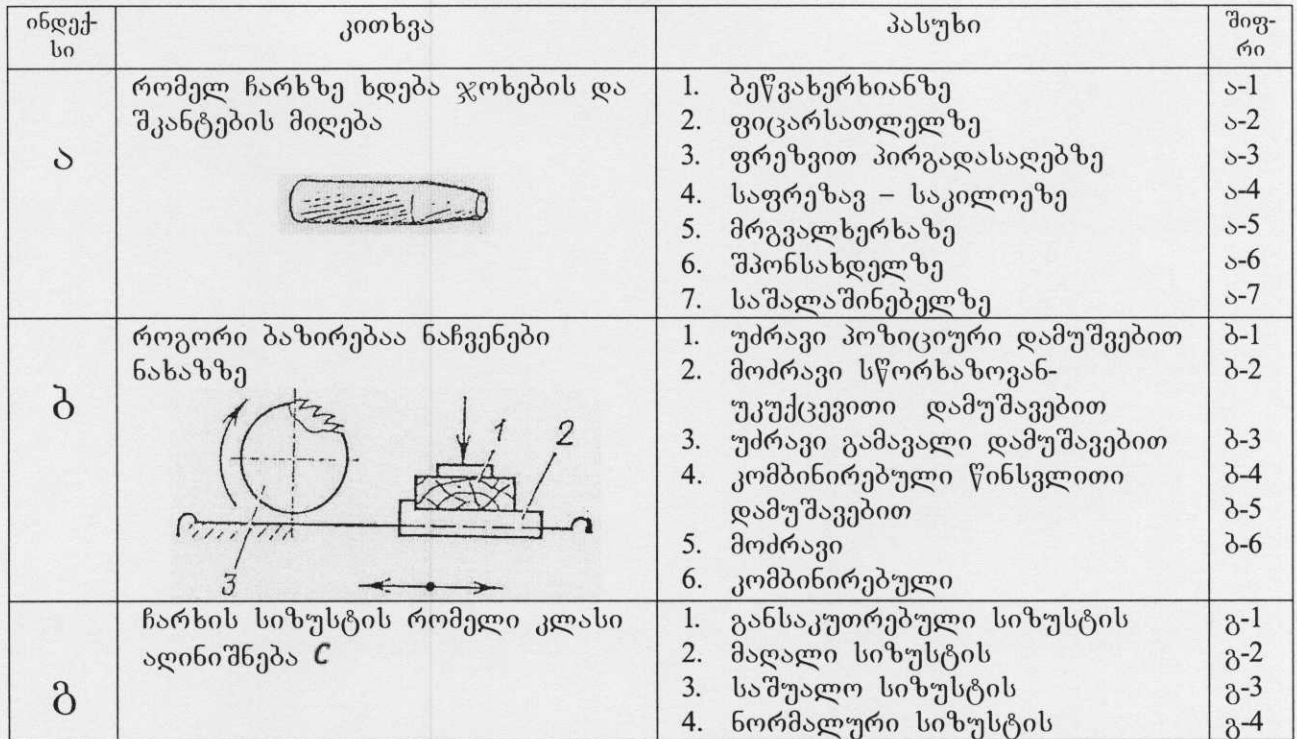 ინდექ-
სი
კითხვა
პასუხი
შიფ-
რი
ა
რომელ ჩარხზე ხდება ჯოხების და
შკანტების მიღება
1. ბეწვახერხიანზე
2. ფიცარსათლელზე
3. ფრეზვით პირგადასაღებზე
4. საფრეზავ – საკილოეზე
5. მრგვალხერხაზე
6. შპონსახდელზე
7. საშალაშინებელზე
ა-1
ა-2
ა-3
ა-4
ა-5
ა-6
ა-7
ბ
როგორი ბაზირებაა ნაჩვენები
ნახაზზე
1
2
3
1. უძრავი პოზიციური დამუშვებით
2. მოძრავი სწორხაზოვან-
უკუქცევითი დამუშავებით
3. უძრავი გამავალი დამუშავებით
4. კომბინირებული წინსვლითი
დამუშავებით
5. მოძრავი
6. კომბინირებული
ბ-1
ბ-2
ბ-3
ბ-4
ბ-5
ბ-6
გ
ჩარხის სიზუსტის რომელი კლასი
აღინიშნება C
1. განსაკუთრებული სიზუსტის
2. მაღალი სიზუსტის
3. საშუალო სიზუსტის
4. ნორმალური სიზუსტის
გ-1
გ-2
გ-3
გ-4